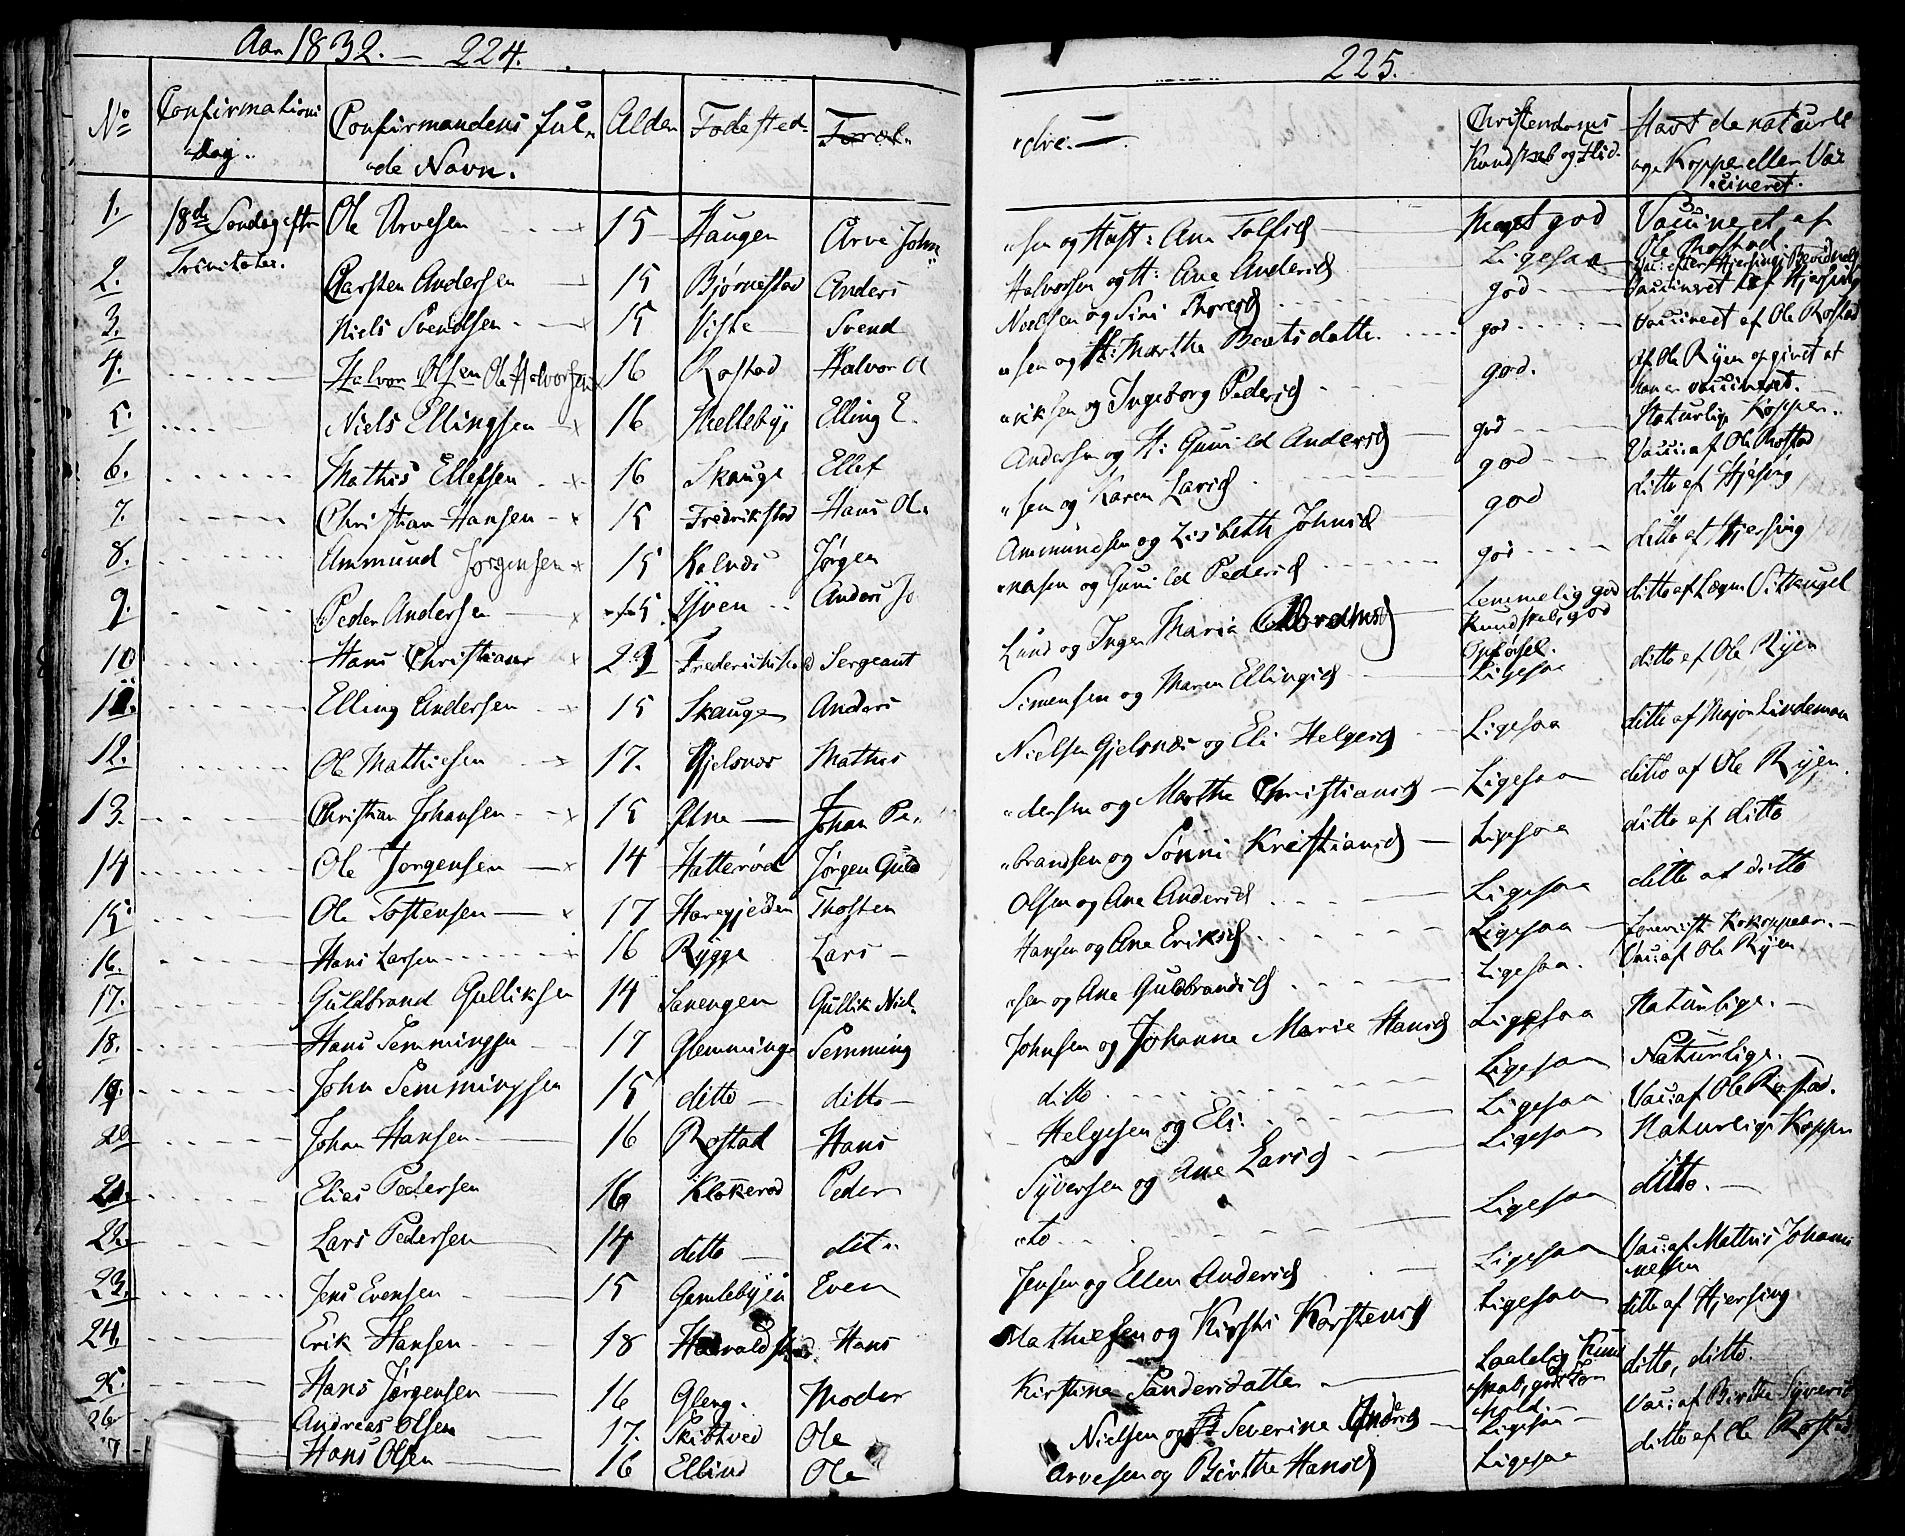 Aar 1832. — 224.
No
Confirmations
Dag.
Confirmandens ful
de Navn.
Alder
Fødested
Foræl
1. 18de Søndag eftr Ole Arvesen 15 Haugen Arve John
2. Trinitatis. Carsten Andersen 15 Bjørnestad Anders
3. Niels Svendsen 15 Viste Svend
4. Halvor Olsen Ole Halvorsen 16 Rostad Halvor O
5. Niels Ellingsen 16 Hellebye Elling E.
6. Mathis Ellefsen 16 Skauge Ellef
7. Christian Hansen 15 Fredrikstad Hans Ol
8. Ammund Jørgensen 15 Kalnæs Jørgen
9. Peder Andersen 15 Yven Anders Jo
10 Hans Christians Frederichstad Sergeant
11. Elling Andersen 15 Skauge Anders
12. Ole Mathiesen 17. Gjelsnæs Mathis
13. Christian Johansen 15 Johan Pe
14 Ole Jørgensen 14 Hatterød Jørgen Guld
15 Ole Tostensen 17 Haregjelden Thosten
16. Hans Larsen 16 Rygge Lars
17. Guldbrand Gulliksen 14 Sanengen Gullik Niel
18. Hans Semmingsen 17 Glemminge Semming
19. John Semmingsen 15 ditto ditto
20 Johan Hansen 16 Rostad Hans
21. Elias Pedersen 16 Klokerød Peder
22. Lars Pedersen 14 ditto dit
23. Jens Evensen 15 Gamlebyen Even
24. Erik Hansen 18 Haraldstad Hans
25. Hans Jørgensen 16 Gleng. Moder
26 Andreas Olsen 17. Skibtved Ole
7 Hans Olsen 16 Ellind Ole
225.
dre.
Christendoms
Kundskab og Flid.
Havt de naturli
ge Kopper eller Vac
cineret.
sen og Hust: Ane Tolfsd Meget god Vaccineret af
Ole Rostad.
Halvorsen og H: Ane Andersd Ligesaa
Nielsen og Siri Thoresd god Vaccineret af Hjersing
sen og H: Marthe Berntsdatter god Vaccineret af Ole Rostad
riksen og Ingeborg Pedersd god. af Ole Ryen opgivet at
han er vaccineret.
Andersen og H: Gunild Andersd god Naturlige Kopper.
sen og Karen Larsd god Vacc: af Ole Rostad
Ammundsen og Lisbeth Johnsd god ditto af Hjersing
nasen og Gunild Pedersd god ditto af Hjersing
Lund og Inger Maria Abrahmsd Temmelig god
Kundskab, god
Opførsel.
ditto af Lægen
Simensen og Maren Ellingsd Ligesaa ditto af Ole Ryen
Nielsen Gjelsnæs og Eli Helgesd Ligesaa ditto af Major Lindeman
dersen og Marthe Christiansd Ligesaa ditto af Ole Ryen
brandsen og Sønni Kristiansd Ligesaa ditto af ditto
Olsen og Ane Andersd Ligesaa ditto af ditto
Hansen og Ane Eriksd Ligesaa Kokopper.
sen og Ane Guldbrandsd Ligesaa. Vacc: af Ole Ryen
Johnsen og Johanne Marie Hansd Ligesaa Naturlige.
ditto Ligesaa Naturlige.
Helgesen og Eli Ligesaa Vacc: af Ole Rostad.
Syversen og Ane Larsd Ligesaa Naturlige Kopper
to Ligesaa ditto.
Jensen og Ellen Andersd Ligesaa Vacc: af Mathis Johann
nessen
Mathiesen og Kirsti Karstensd Ligesaa ditto af Hjersing.
Kirstine Sandersdatter Taalelig Kund
skab, god For
hold.
ditto, ditto.
Nielsen og H Severine Andersd Ligesaa Vacc: af Birthe Syversd
Arvesen og Birthe Hansd Ligesaa ditto af Ole Rostad.